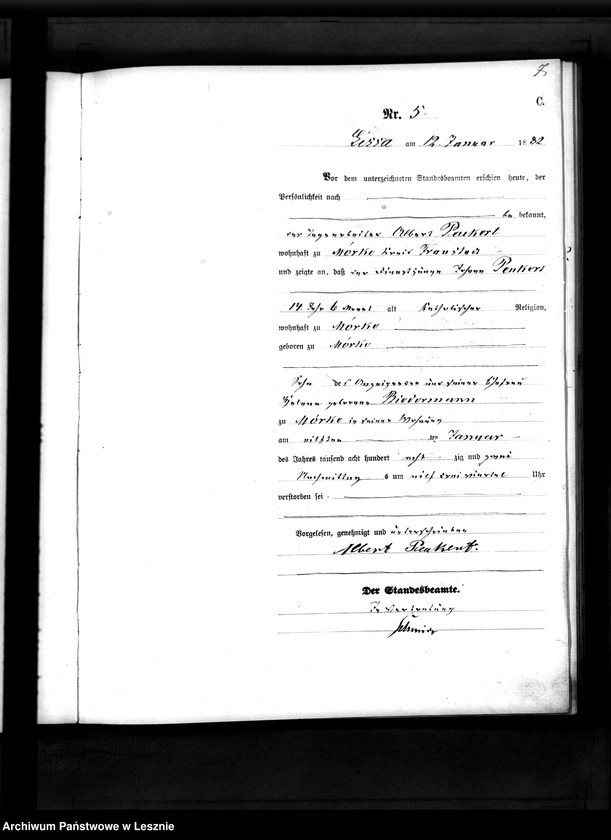 C.
Nr. 5
Lissa am 12 Januar 1882
Vor dem unterzeichneten Standesbeamten erschien heute, der
Persönlichkeit nach
be bekannt,
der Tagearbeiter Albert Peukert
wohnhaft zu Mórko Kreis Fraustadt
und zeigte an, daß der Dienstjunge Johann Peukert
14 Jahr 6 Monat alt katholischer Religion,
wohnhaft zu Mórko
geboren zu Mórko
Sohn des Anzeigenden und seiner Ehefrau
geborene Biedermann
zu Mórko in seiner Wohnung
am elften ten Januar
des Jahres tausend acht hundert acht zig und zwei
Nachmittag s um elf drei viertel Uhr
verstorben sei
Vorgelesen, genehmigt und unterschrieben
Albert Peukert.
Der Standesbeamte.
In Vertretung
Archiwum Państwowe w Lesznie